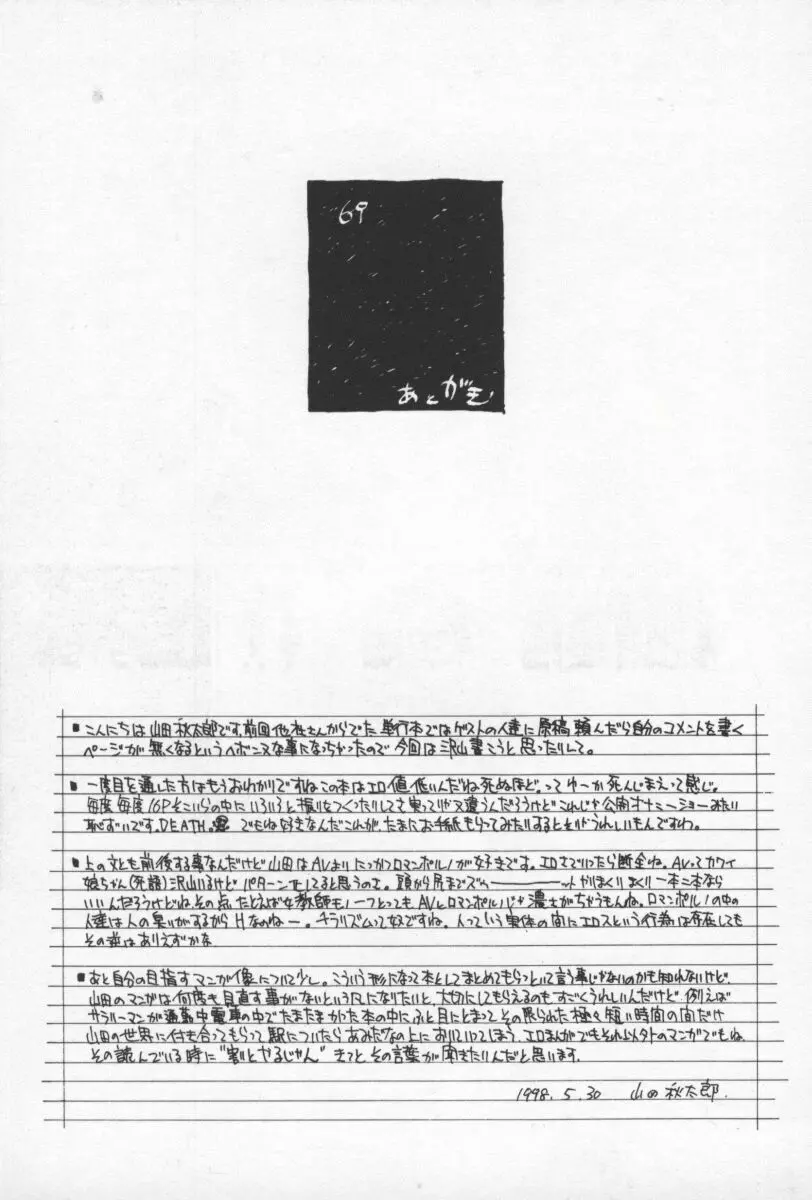 69
あとがき
■こんにちは山田秋太郎です。前回他社さんからでた単行本ではゲストの人達に原稿頼んだら自分のコメントを書く
ページが無くなるというヘボンヌな事になっちゃったので今回は沢山書こうと思ったりして。
■一度目を通した方はもうおわかりですねこの本はエロ値低いんだよね死ぬほど。ってゆーか死んじまえって感じ。
毎度毎度16Pそこいらの中にいろいろと振りをつくったりしてさ実って
違うんだろうけどこれじゃ公開オナニーショーみたい
恥ずいです。DEATH。でもね好きなんだこれが。たまにお手紙もらってみたりするとそれがうれしいもんですわ。
■上の文とも前後する事なんだけど山田はAVよりにっかつロマンポルノが好きです。エロさでいったら断全ね。AVってカワイ
娘ちゃん(死語)沢山いるけどパターン化してると思うのさ。頭から尻までズム────ット
一本二本なら
いいんだろうけどねその点たとえば女教師モノ一つとってもAVとロマンポルノじゃ濃さがちがうもんね。ロマンポルノの中の
人達は人の臭いがするからHなのねー。チラリズムって奴ですね。人っていう実体の間にエロスという行為は存在しても
その逆はありえずかな
■あと自分の目指すマンガ像について少し。こういう形になって本としてまとめてもらっといて言う事じゃないのかも知れないけど
山田のマンガは何度も見直す事がないという風になりたいと、大切にしてもらえるのもすごくうれしいんだけど例えば
サラリーマンが通勤中電車の中でたまたまかった本の中にふと目にとまってその限られた極々短い時間の間だけ
山田の世界に付き合ってもらって駅についたらあみだなの上においていってしまう。エロまんがでもそれ以外のマンガでもね
その読んでいる時に"割とやるじゃん"きっとその言葉が聞きたいんだと思います。
1998.5.30 山田秋太郎.